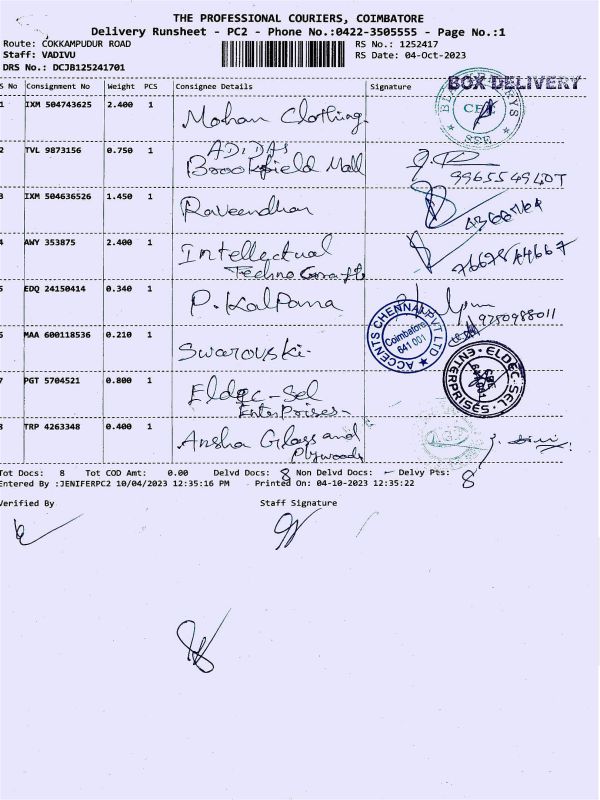 THE PROFESSIONAL COURIERS, COIMBATORE
Delivery Runsheet - PC2 - Phone No.:0422-3505555 - Page No.:1
Route: COKKAMPUDUR ROAD RS No.: 1252417
Staff: VADIVU RS Date: 04-Oct-2023
DRS No.: DCJB125241701
BOX DELIVERY
S No Consignment No Weight PCS Consignee Details Signature
1 IXM 504743625 2.400 1 Mohan Clothing
CBE
2 TVL 9873156 0.750 1 ADIDAS
Broookfield Mall
3 IXM 504636526 1.450 1 Raveendhan
4 AWY 353875 2.400 1 Intellectual
Techno Crafts
5 EDQ 24150414 0.340 1 P. Kalpana
9750988011
ACCENTS CHENNAI PVT LTD
Coimbatore
641 001
6 MAA 600118536 0.210 1 Swarovski-
ELDEC-SEL ENTERPRISES
7 PGT 5704521 0.800 1 Eldec-Sel
Enterprises
8 TRP 4263348 0.400 1 Ansha Glass and
Plywoods
Tot Docs: 8 Tot COD Amt: 0.00 Delvd Docs: 8 Non Delvd Docs: - Delvy Pts: 8
Entered By :JENIFERPC2 10/04/2023 12:35:16 PM Printed On: 04-10-2023 12:35:22
Verified By Staff Signature